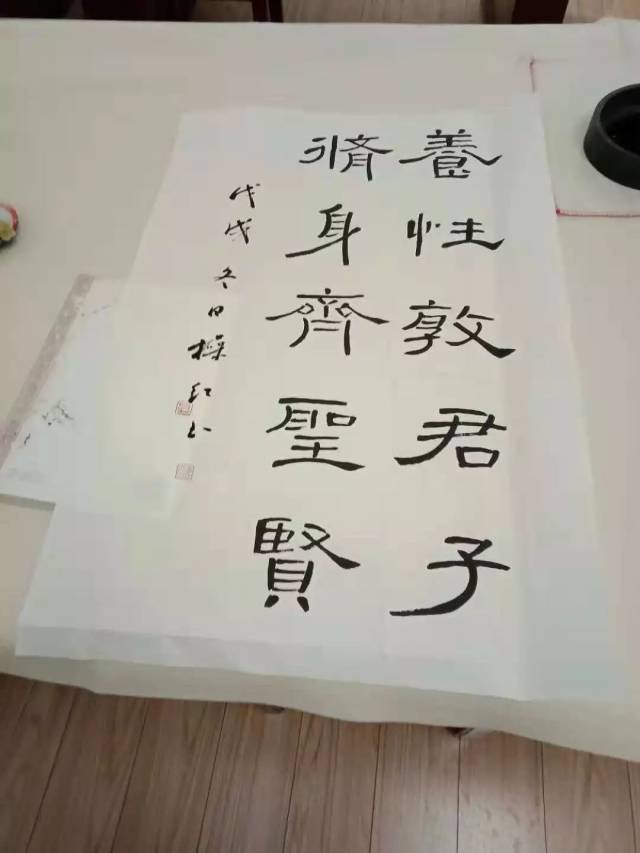 養性敦君子
脩身齊聖賢
戊戌冬日操紅书